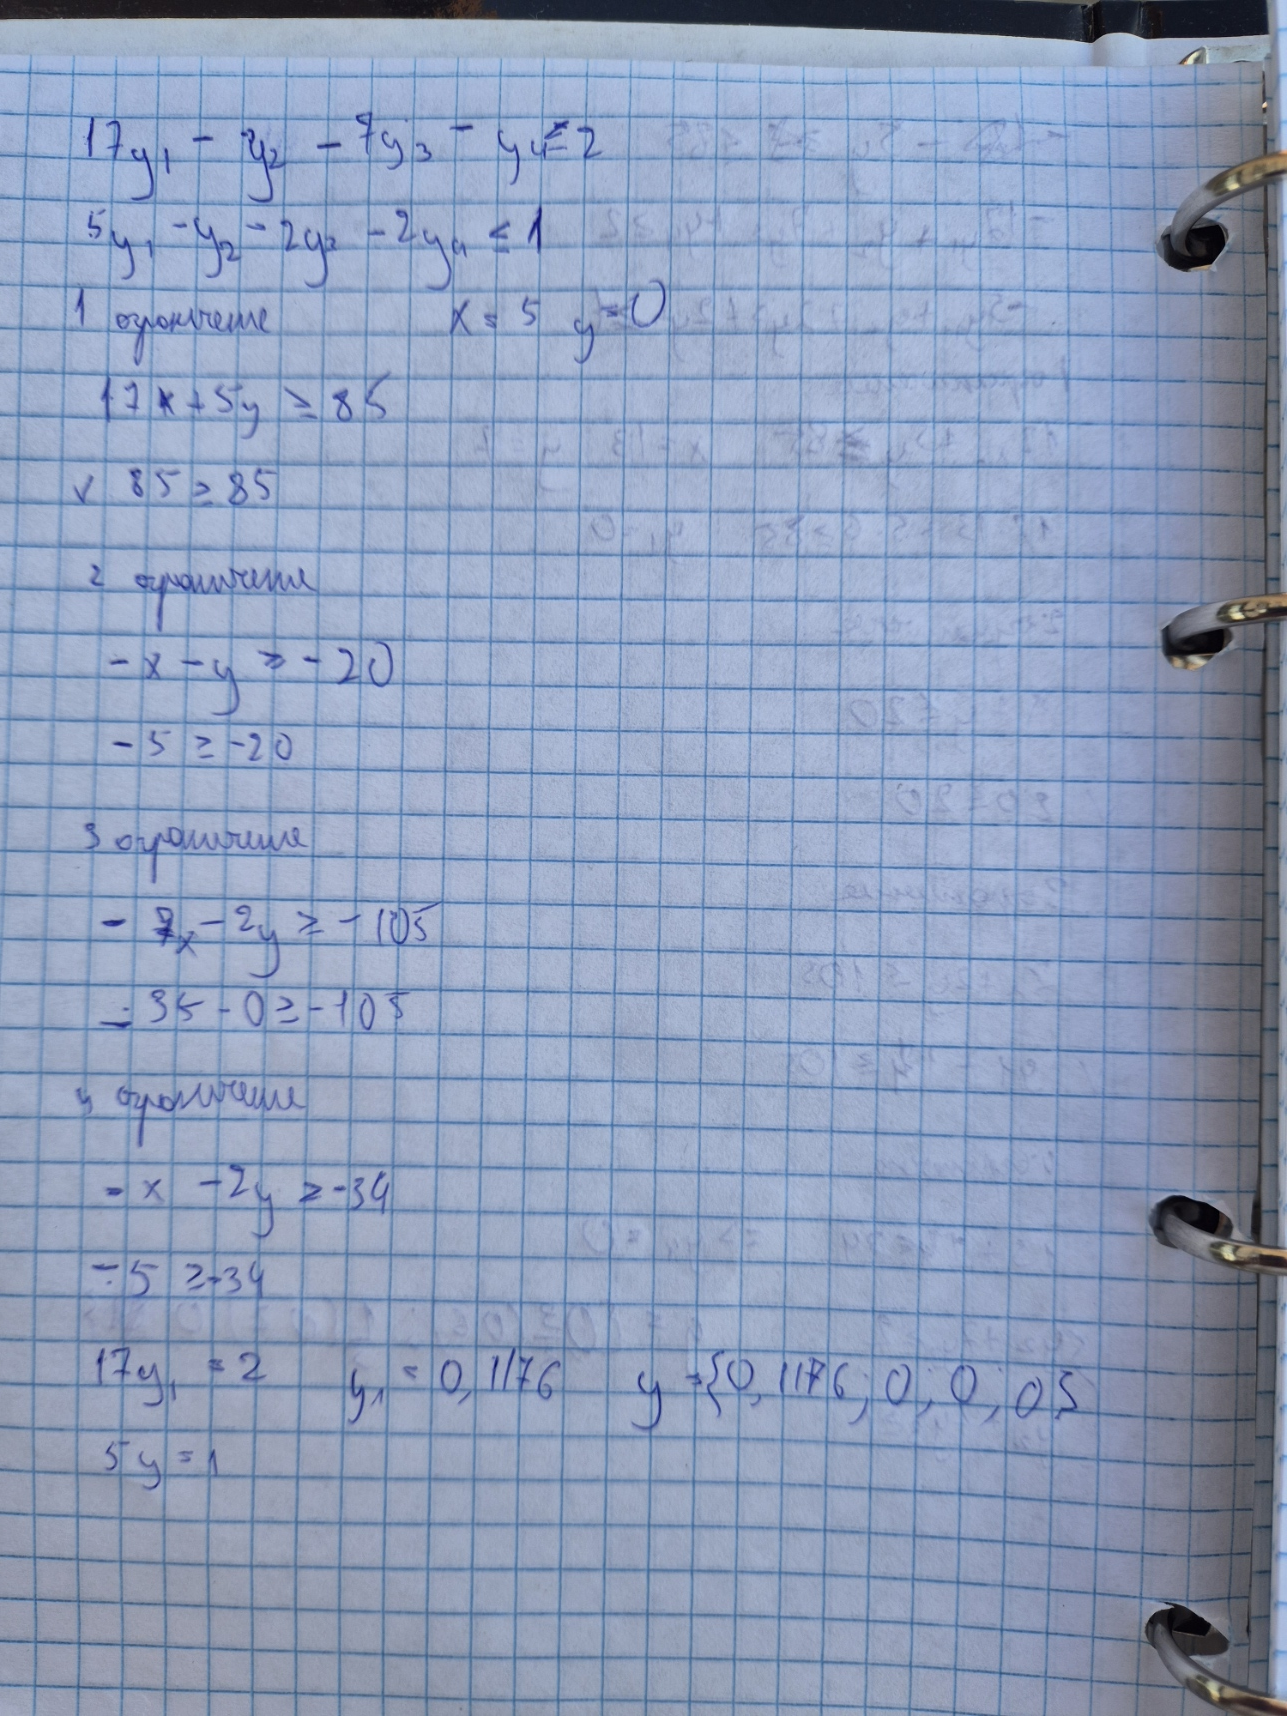 17y₁ - y₂ - 7y₃ - y₄ ≤ 2
5y₁ - y₂ - 2y₃ - 2y₄ ≤ 1
1 ограничение x = 5 y = 0
17x + 5y ≥ 85
v 85 ≥ 85
2 ограничение
- x - y ≥ - 20
- 5 ≥ -20
3 ограничение
- 7x - 2y ≥ - 105
- 35 - 0 ≥ - 105
4 ограничение
- x - 2y ≥ -34
- 5 ≥ -34
17y₁ = 2 y₁ = 0,1176 y = {0,1176; 0; 0; 0}
5y = 1